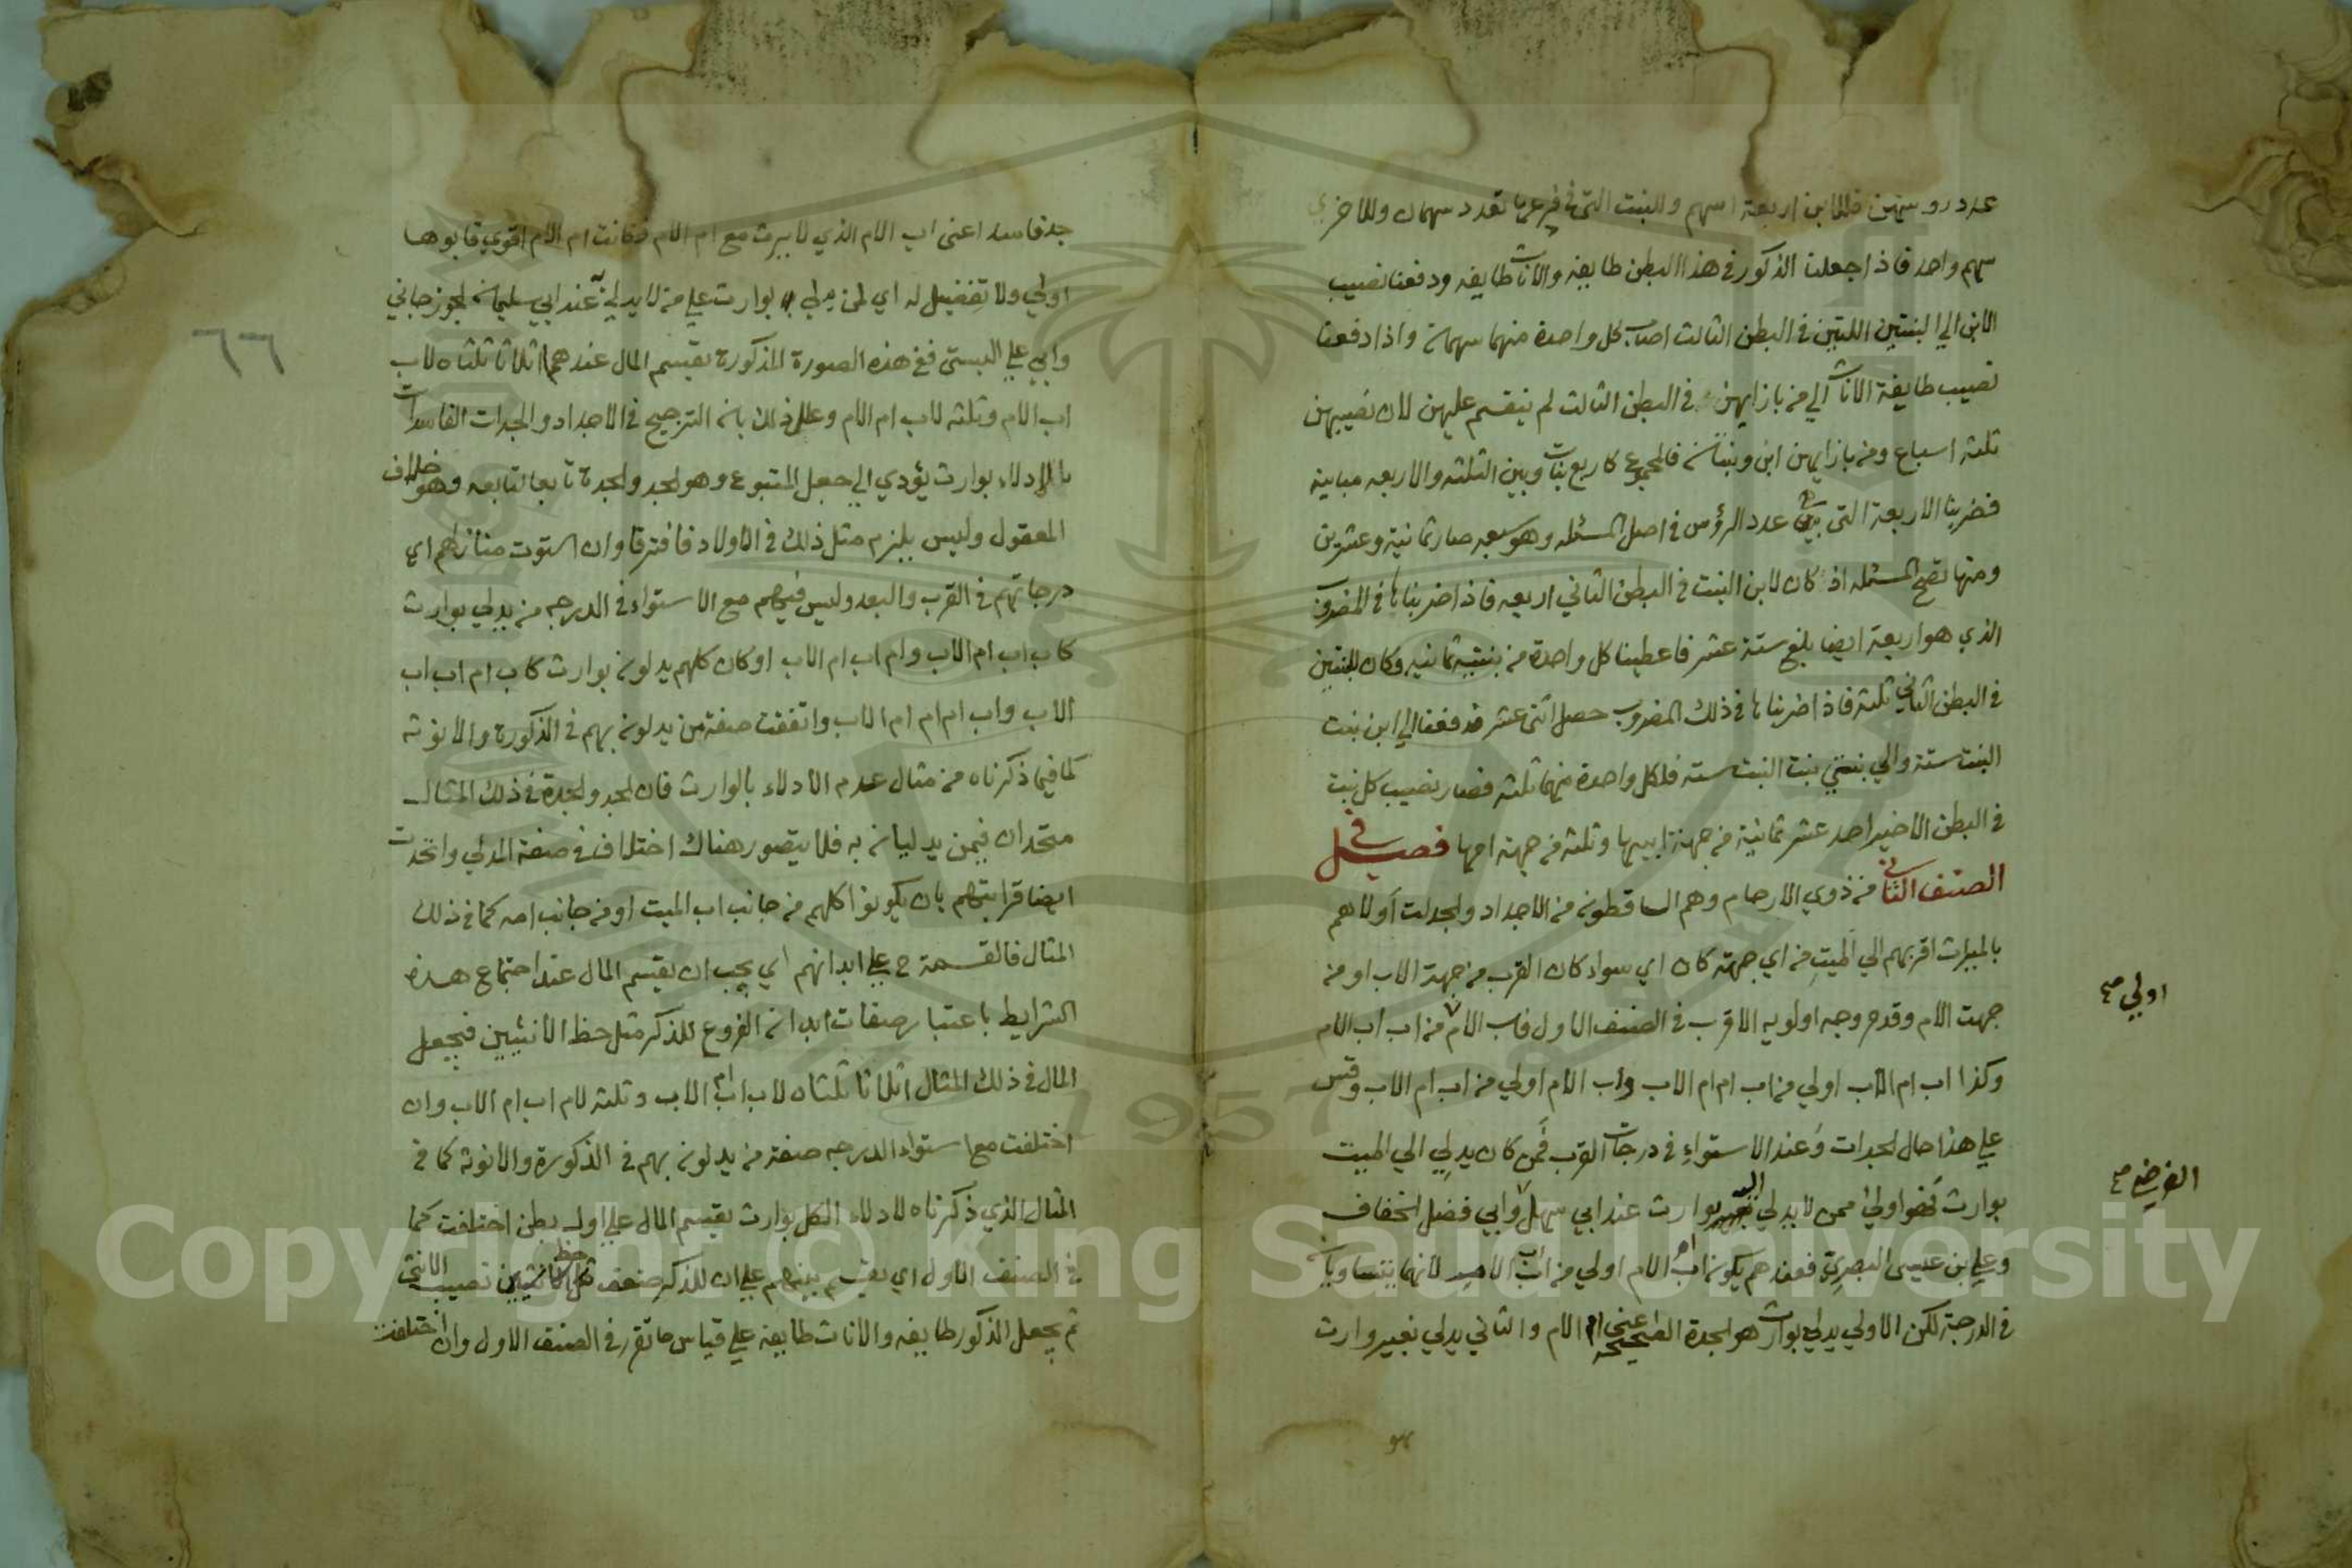 عدد روسهن فللابن اربعة اسهم وللبنت التى فى فرعها تعدد سهمان وللاخري
سهم واحد فاذا جعلنا الذكور فى هذا البطن طايفه والاناث طايفه ودفعنا نصيب
الابن الي البنتين اللتين فى البطن الثالث اصاب كل واحدة منهما سهمان واذا دفعنا
نصيب طايفة الاناث الي من بازايهن فى البطن الثالث لم ينقسم عليهن لان نصيبهن
ثلثه اسباع ومن بازايهن ابن وبنتان فالمجموع كاربع بنات وبين الثلثه والاربعه مباينه
فضربنا الاربعة التى هى عدد الرؤس فى اصل المسئله وهو سبعه صار ثمانية وعشرين
ومنها تصح المسئله اذ كان لابن البنت فى البطن الثاني اربعه فاذا ضربناها فى المضروب
الذي هو اربعة ايضا بلغ ستة عشر فاعطينا كل واحدة من بنتيه ثمانيه وكان للبنتين
فى البطن الثاني ثلثه فاذا ضربناها فى ذلك المضروب حصل اثنى عشر فدفعنا الي ابن بنت
البنت ستة والي بنتي بنت البنت سته فلكل واحدة منهما ثلثه فصار نصيب كل بنت
فى البطن الاخير احد عشر ثمانية من جهة ابيها وثلثه من جهة امها فصل فى
الصنف الثانى من ذوي الارحام وهم الساقطون من الاجداد والجدات اولاهم
بالميراث اقربهم الي الميت من اي جهة كان اي سواء كان القرب من جهة الاب او من
جهت الام وقدم وجه اولويه الاقرب فى الصنف الاول فاب الام من اب اب الام
اولي صح
وكذا اب ام الاب اولي من اب ام ام الاب واب الام اولي من اب ام الاب وقس
علي هذا حال الجدات وعند الاستواء فى درجات القرب فمن كان يدلي الي الميت
بوارث فهو اولي ممن لا يدلي اليه بوارث عند ابي سهل وابي فضل الخفاف
الفرضي صح
وعلي بن عيسى البصري فعندهم يكون اب ام الام اولي من اب اب الام لانهما يتساويان
فى الدرجة لكن الاولي يدلي بوارث هو الجدة الصحيحه اعنى ام الام والثاني يدلي بغير وارث
٦٦
جد فاسد اعنى اب الام الذي لا يرث مع ام الام فكانت ام الام اقوي فابوها
اولي ولا تفضيل له اي لمن يدلي بوارث علي من لا يدلي به عند ابي سليمان الجوزجاني
وابي علي البستى ففى هذه الصورة المذكورة يقسم المال عندهما اثلاثا ثلثاه لاب
اب الام وثلثه لاب ام الام وعلل ذلك بان الترجيح فى الاجداد والجدات الفاسدات
بالادلاء بوارث يؤدي الي جعل المتبوع وهو الجد والجدة تابعا لتابعه وهو خلاف
المعقول وليس يلزم مثل ذلك فى الاولاد فافترقا وان استوت منازلهم اي
درجاتهم فى القرب والبعد وليس فيهم مع الاستواء فى الدرجه من يدلي بوارث
كاب اب ام الاب وام اب ام الاب او كان كلهم يدلون بوارث كاب ام اب اب
الاب واب ام ام ام الاب واتفقت صفة من يدلون بهم فى الذكورة والانوثه
كما فيما ذكرناه من مثال عدم الادلاء بالوارث فان الجد والجدة فى ذلك المثال
متحدان فيمن يدليان به فلا يتصور هناك اختلاف فى صفة المدلي واتحدت
ايضا قرابتهم بان يكونوا كلهم من جانب اب الميت او من جانب امه كما فى ذلك
المثال فالقسمة ح علي ابدانهم اي يجب ان يقسم المال عند اجتماع هذه
الشرايط باعتبار صفات ابدان الفروع للذكر مثل حظ الانثيين فيجعل
المال فى ذلك المثال اثلاثا ثلثاه لاب اب ام الاب وثلثه لام اب ام الاب وان
اختلفت مع استواء الدرجه صفة من يدلون بهم فى الذكورة والانوثه كما فى
المثال الذي ذكرناه لادلاء الكل بوارث يقسم المال علي اول بطن اختلفت كما
فى الصنف الاول اي يقسم بينهم علي ان للذكر ضعف نصيب الانثى
ثم يجعل الذكور طايفه والاناث طايفه علي قياس ما تقرر فى الصنف الاول وان اختلفت
Copyright © King Saud University
1957